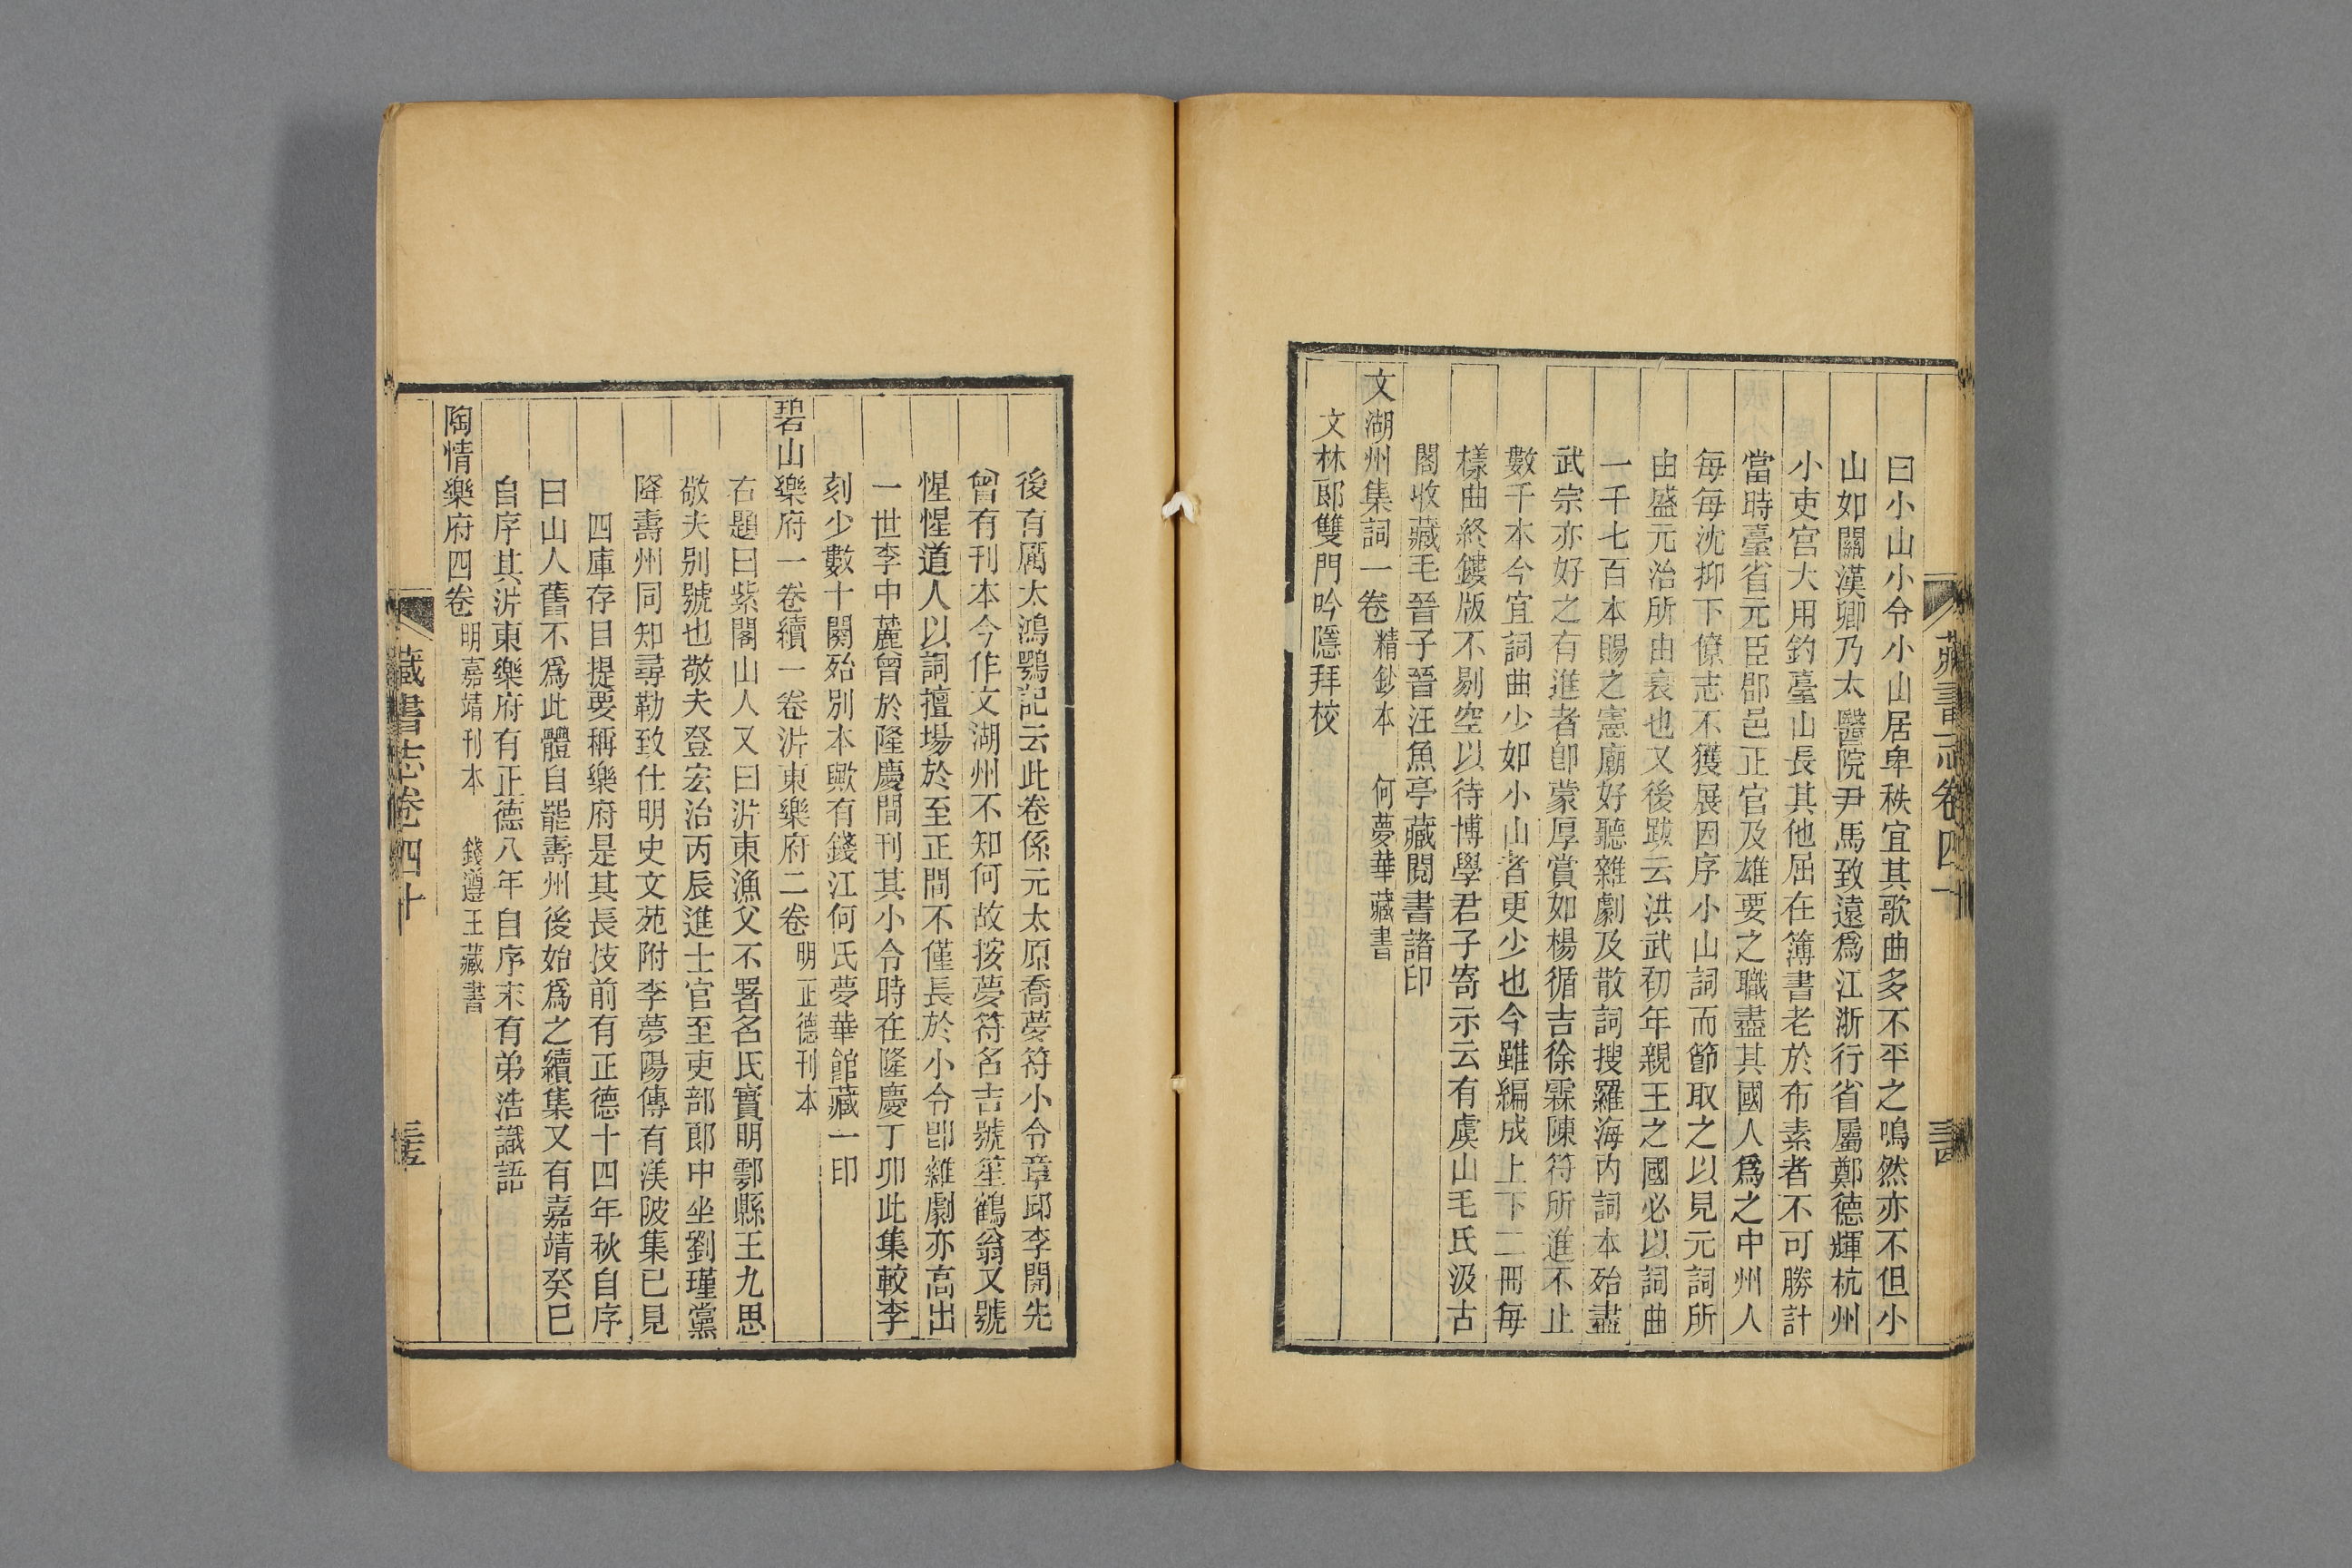 曰小山小令小山居卑秩宜其歌曲多不平之鳴然亦不但小
山如關漢卿乃太醫院尹馬致遠爲江浙行省屬鄭德輝杭州
小吏宫大用釣臺山長其他屈在簿書老於布素者不可勝計
當時臺省元臣郡邑正官及雄要之職盡其國人爲之中州人
每每沈抑下僚志不獲展因序小山詞而節取之以見元詞所
由盛元治所由衰也又後跋云洪武初年親王之國必以詞曲
一千七百本賜之憲廟好聽雜劇及散詞搜羅海内詞本殆盡
武宗亦好之有進者卽蒙厚賞如楊循吉徐霖陳符所進不止
數千本今宜詞曲少如小山者更少也今雖編成上下二冊每
樣曲終鏤版不剔空以待博學君子寄示云有虞山毛氏汲古
閣收藏毛晉子晉汪魚亭藏閱書諸印
文湖州集詞一卷精鈔本 何夢華藏書
文林郎雙門吟隱拜校
藏書志卷四十
後有厲太鴻鶚記云此卷係元太原喬夢符小令章邱李開先
曾有刊本今作文湖州不知何故按夢符名吉號笙鶴翁又號
惺惺道人以詞擅場於至正間不僅長於小令卽雜劇亦高出
一世李中麓曾於隆慶間刊其小令時在隆慶丁卯此集較李
刻少數十闋殆別本歟有錢江何氏夢華館藏一印
碧山樂府一卷續一卷沜東樂府二卷明正德刊本
右題曰紫閣山人又曰沜東漁父不署名氏實明鄠縣王九思
敬夫別號也敬夫登宏治丙辰進士官至吏部郎中坐劉瑾黨
降壽州同知尋勒致仕明史文苑附李夢陽傳有渼陂集已見
四庫存目提要稱樂府是其長技前有正德十四年秋自序
曰山人舊不爲此體自罷壽州後始爲之續集又有嘉靖癸巳
自序其沜東樂府有正德八年自序末有弟浩識語
陶情樂府四卷明嘉靖刊本 錢遵王藏書
藏書志卷四十